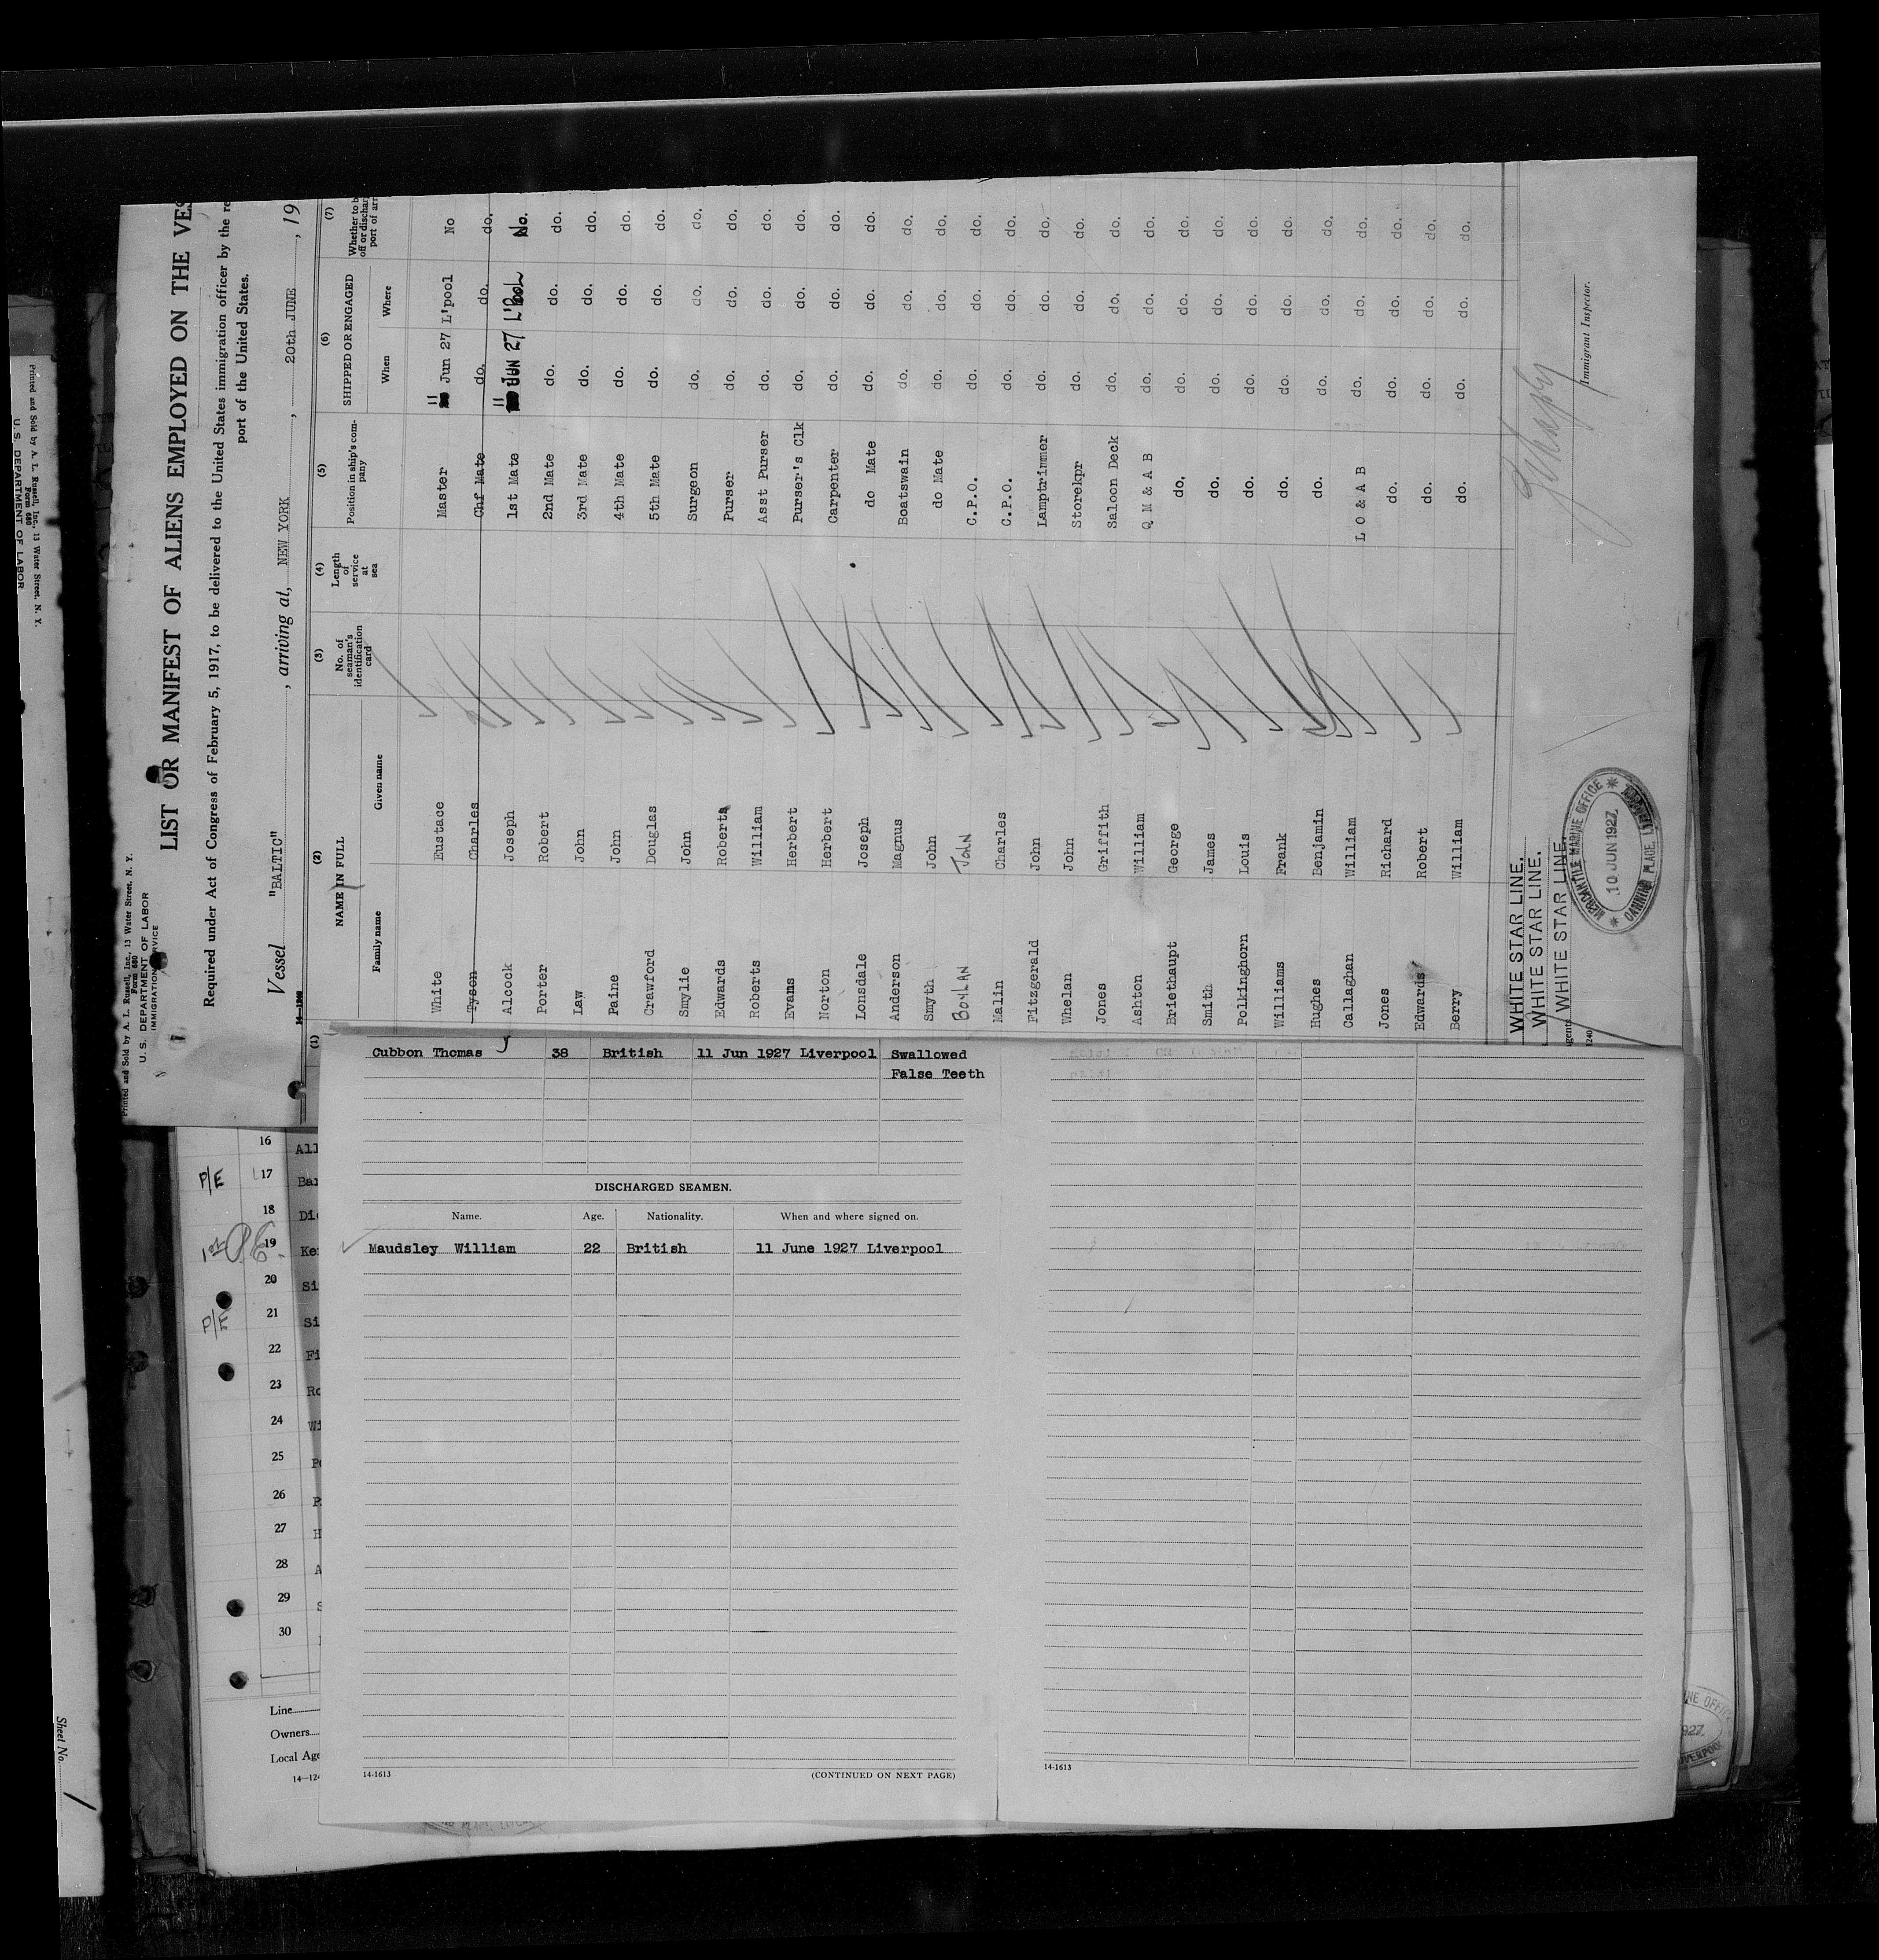 Printed and Sold by A. L. Russell, Inc., 13 Water Street, N. Y.
Form 680
U. S. DEPARTMENT OF LABOR
IMMIGRATION SERVICE
LIST OR MANIFEST OF ALIENS EMPLOYED ON THE VES
Required under Act of Congress of February 5, 1917, to be delivered to the United States immigration officer by the re
port of the United States.
Vessel "BALTIC", arriving at, NEW YORK, 20th JUNE, 19
(1) (2) (3) (4) (5) (6) (7)
NAME IN FULL No. of seaman's identification card Length of service at sea Position in ship's company SHIPPED OR ENGAGED Whether to b
off or dischar
port of arr
Family name Given name When Where
White Eustace Master 11 Jun 27 L'pool No
Tyson Charles Chf Mate do. do. do.
Alcock Joseph 1st Mate 11 JUN 27 L'POOL No.
Porter Robert 2nd Mate do. do. do.
Law John 3rd Mate do. do. do.
Paine John 4th Mate do. do. do.
Crawford Douglas 5th Mate do. do. do.
Smylie John Surgeon do. do. do.
Edwards Roberts Purser do. do. do.
Roberts William Asst Purser do. do. do.
Evans Herbert Purser's Clk do. do. do.
Norton Herbert Carpenter do. do. do.
Lonsdale Joseph do Mate do. do. do.
Anderson Magnus Boatswain do. do. do.
Smyth John do Mate do. do. do.
BOYLAN JOHN C.P.O. do. do. do.
Malin Charles C.P.O. do. do. do.
Fitzgerald John Lamptrimmer do. do. do.
Whelan John Storekpr do. do. do.
Jones Griffith Saloon Deck do. do. do.
Ashton William Q M & A B do. do. do.
Briethaupt George do. do. do. do.
Smith James do. do. do. do.
Polkinghorn Louis do. do. do. do.
Williams Frank do. do. do. do.
Hughes Benjamin do. do. do. do.
Callaghan William L O & A B do. do. do.
Jones Richard do. do. do. do.
Edwards Robert do. do. do. do.
Berry William do. do. do. do.
WHITE STAR LINE.
WHITE STAR LINE.
WHITE STAR LINE.
MERCANTILE MARINE OFFICE
10 JUN 1927
CANNING PLACE
Immigrant Inspector.
Cubbon Thomas 38 British 11 Jun 1927 Liverpool Swallowed
False Teeth
DISCHARGED SEAMEN.
Name. Age. Nationality. When and where signed on.
Maudsley William 22 British 11 June 1927 Liverpool
14-1613 (CONTINUED ON NEXT PAGE)
14-1613
16 All
P/E 17 Bar
18 Die
1st 19 Ke
20 Si
P/E 21 Si
22 Fi
23 Ro
24 Wi
25 P
26
27 H
28 A
29 S
30
Line
Owners
Local Age
14—124
Printed and Sold by A. L. Russell, Inc., 13 Water Street, N. Y.
Form 680
U. S. DEPARTMENT OF LABOR
Sheet No. 1